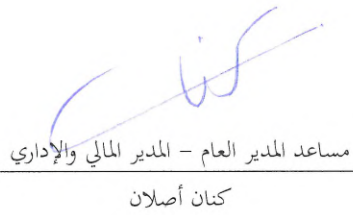 مساعد المدير العام – المدير المالي والإداري
كنان أصلان